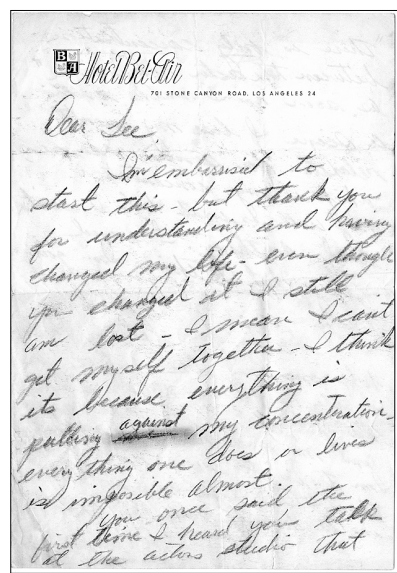 B A
Hotel Bel-Air
701 STONE CANYON ROAD, LOS ANGELES 24
Dear Lee,
I'm embarrisid to
start this - but thank you
for understanding and having
changed my life - even though
you changed it I still
am lost - I mean I can't
get myself together - I think
its because everything is
pulling against my concentration -
everything one does or lives
is impossible almost.
you once said the
first time I heard you talk
at the actors studio that